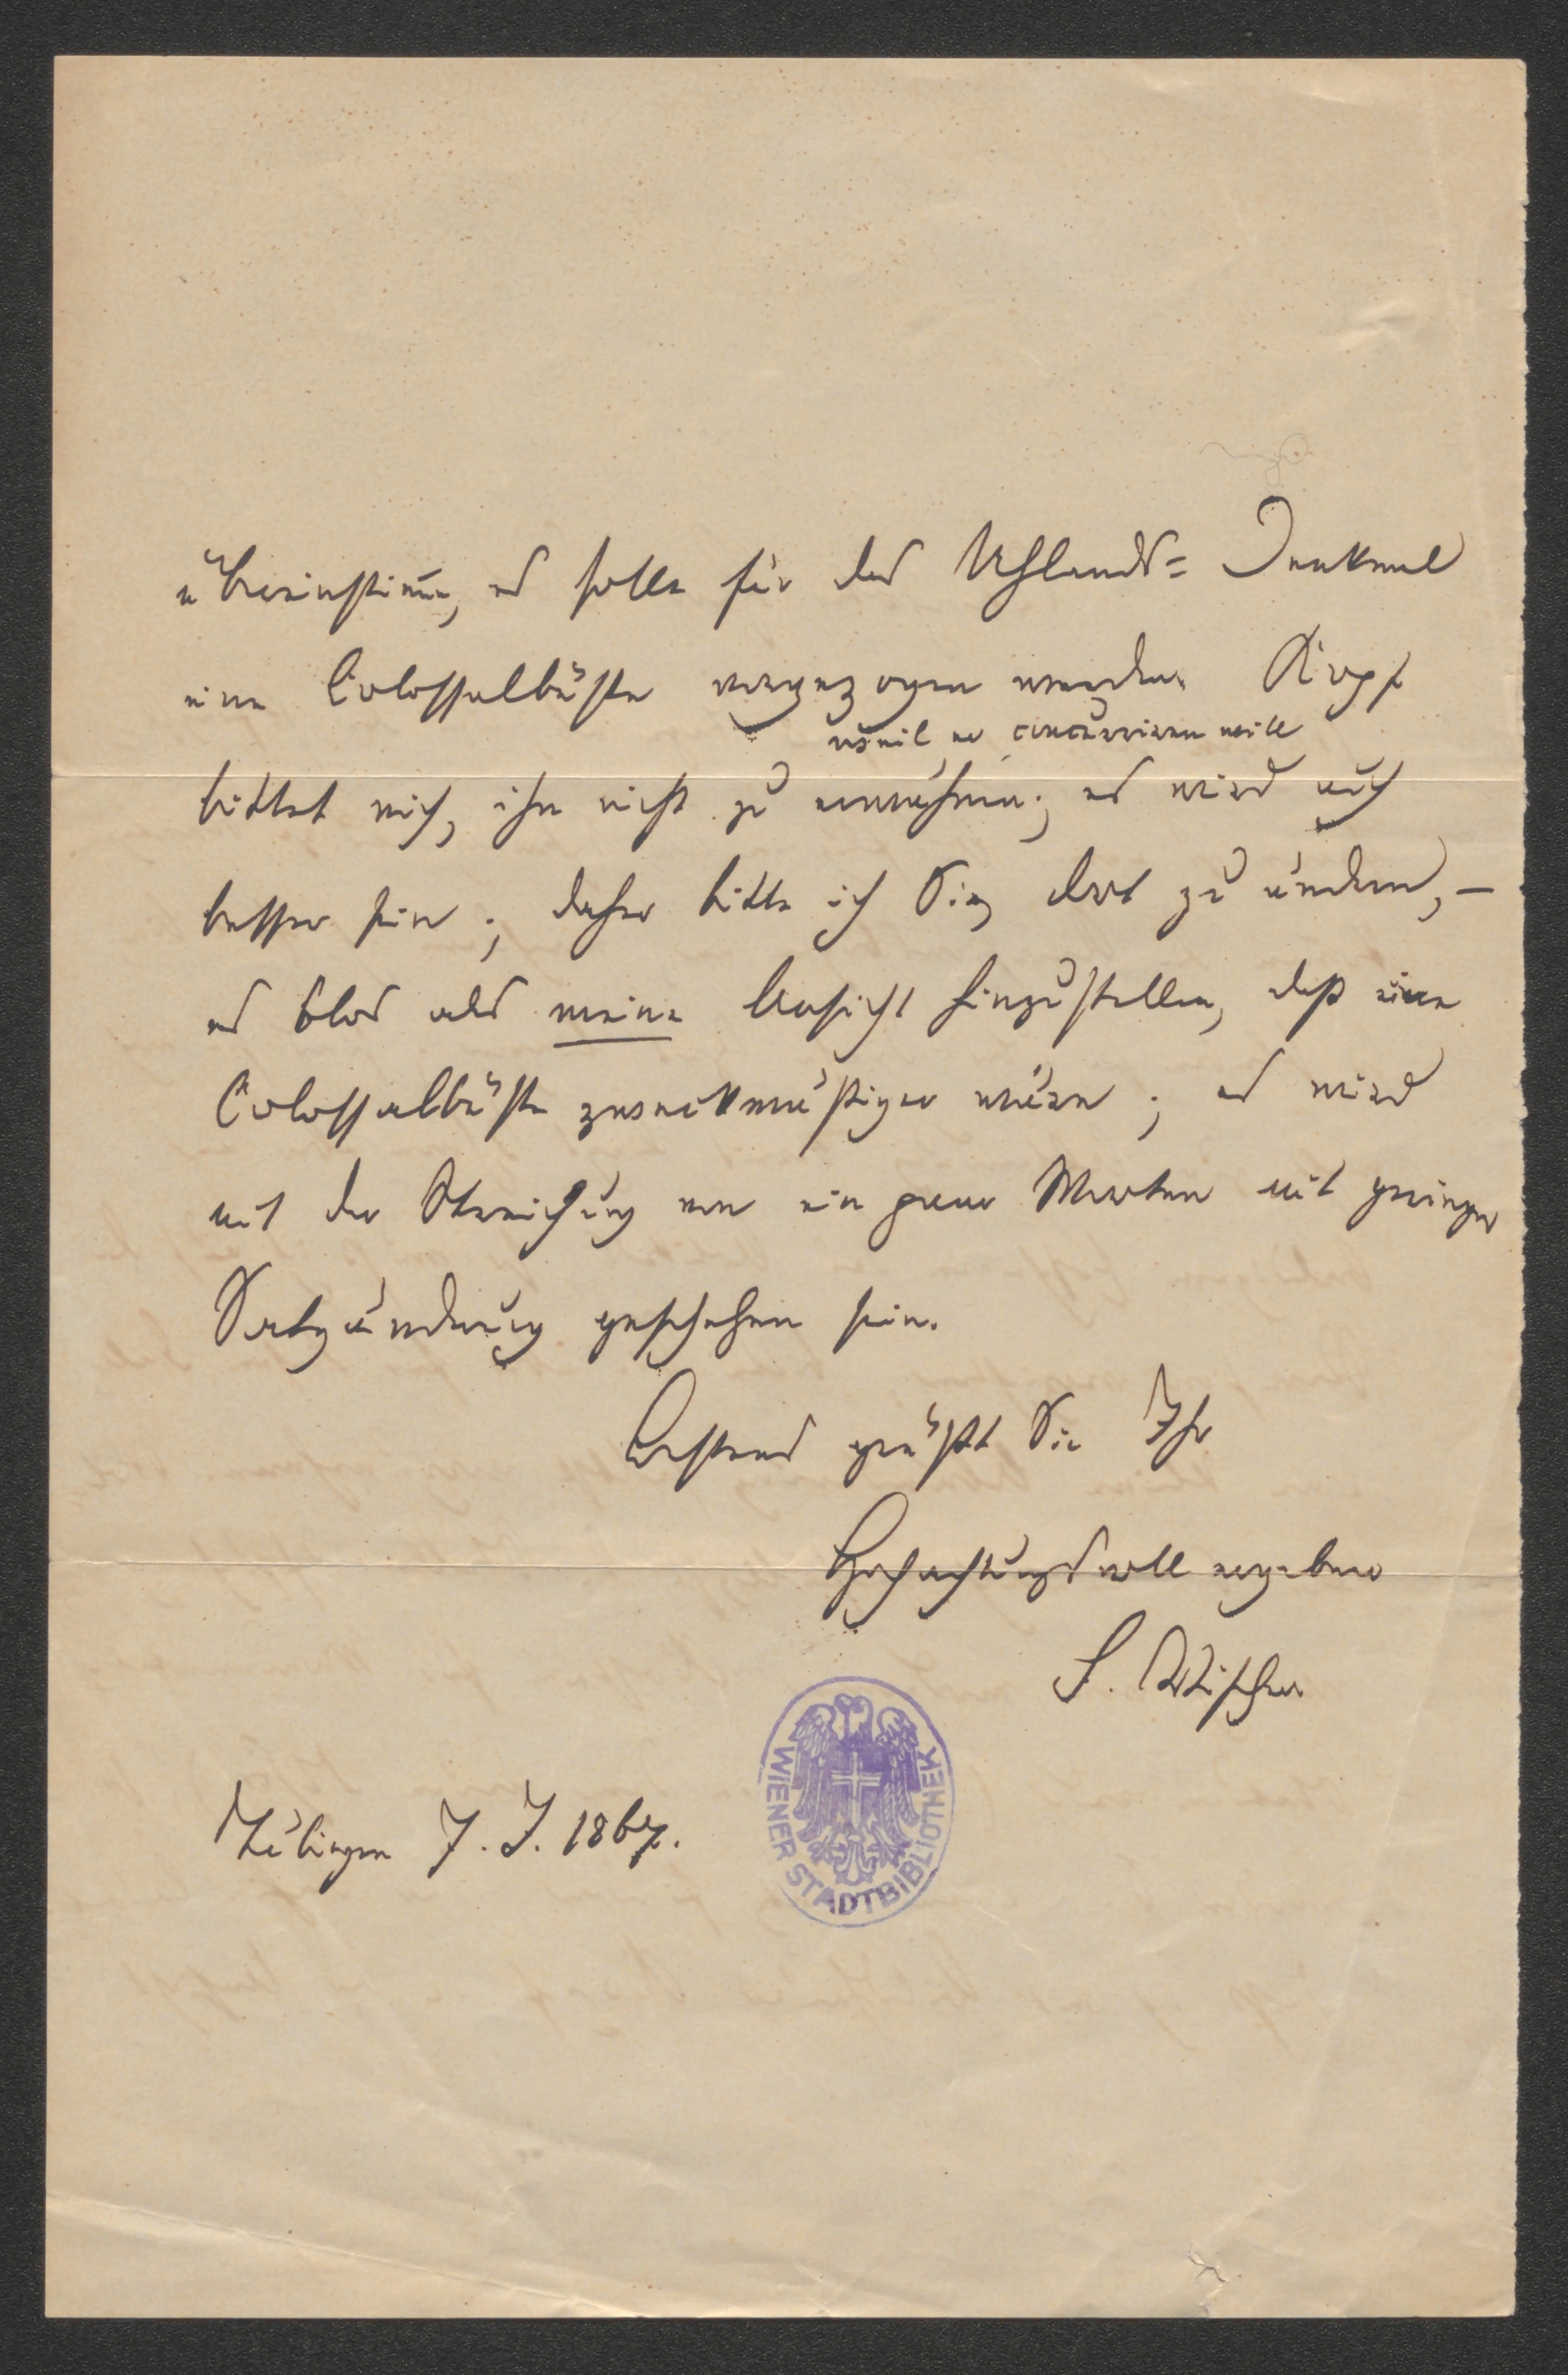 übereinstim̄e, es solle für das Uhlands= Denkmal
eine Colossalbüste vorgezogen werden. Kopf
weil er concurriren will
bittet mich, ihn nicht zu erwähnen; es wird auch
besser sein; daher bitte ich Sie, dort zu ändern, –
es blos als meine Ansicht hinzustellen, daß eine
Colossalbüste zweckmäßiger wäre; es wird
mit der Streichung von ein paar Worten mit geringer
Satzänderung geschehen sein.
Bestens grüßt Sie Ihr
Hochachtungsvoll ergebener
F. Vischer
WIENER STADTBIBLIOTHEK
Tübingen 7. J. 1867.